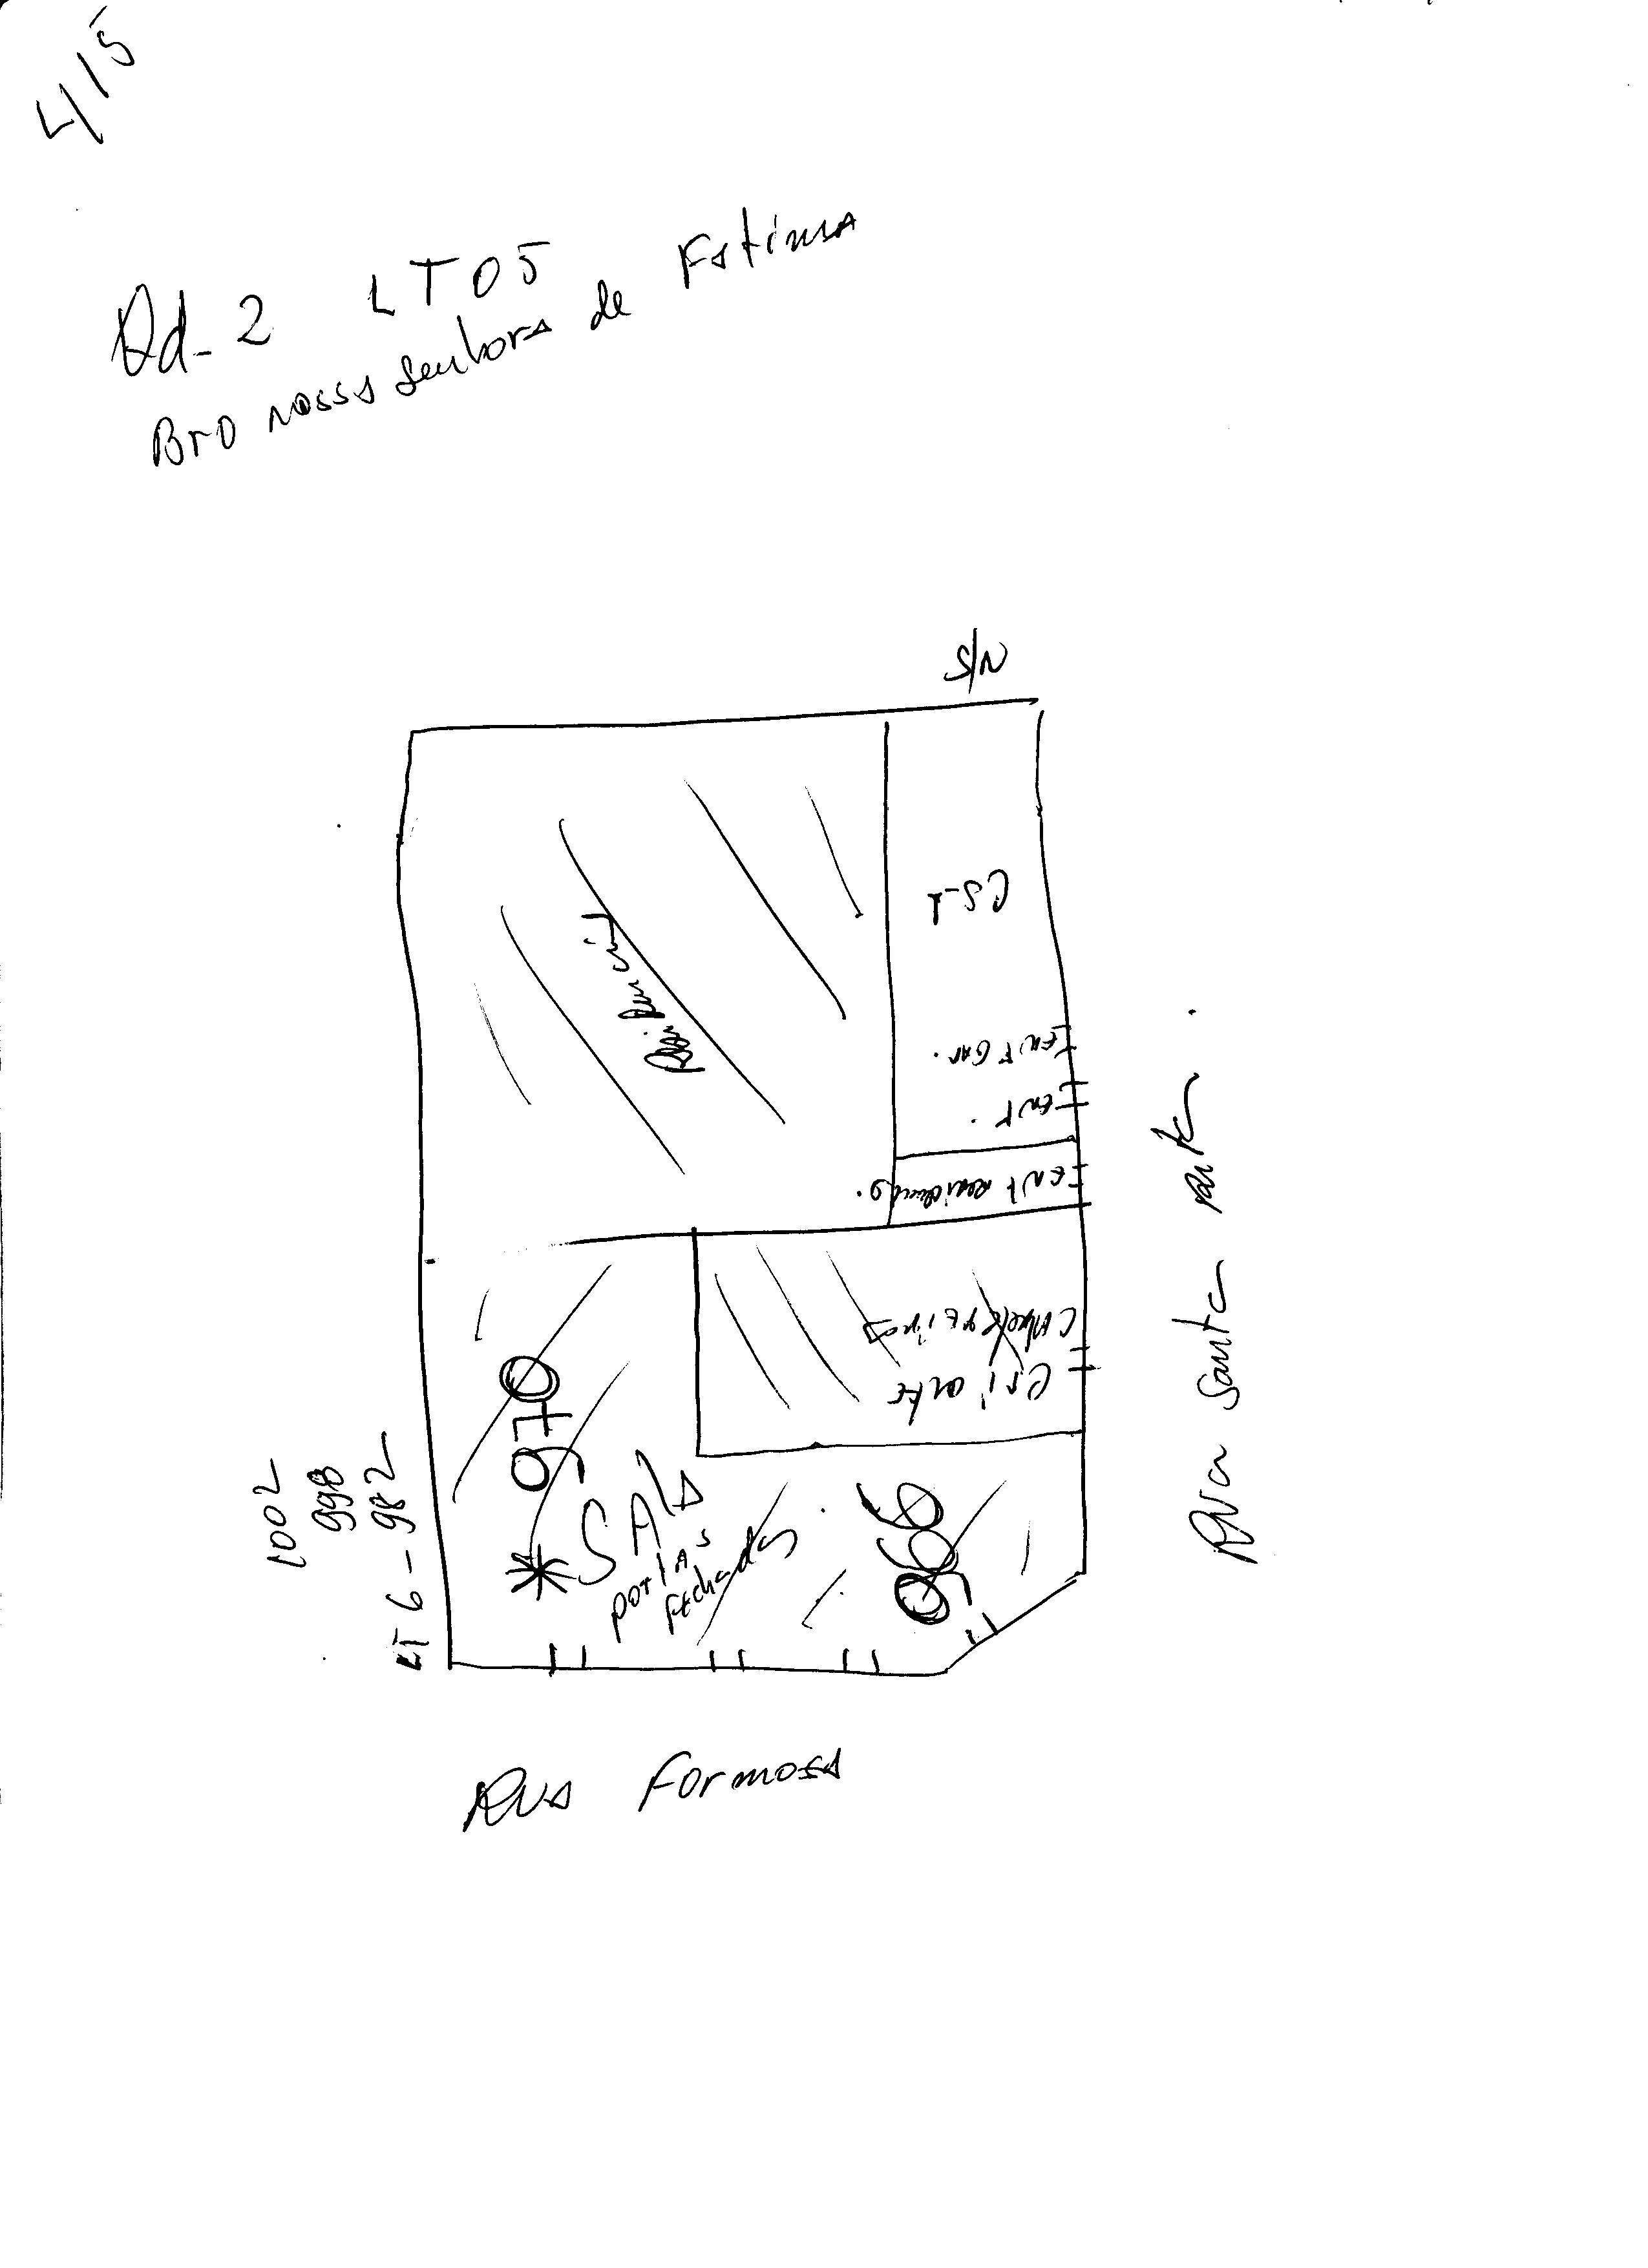 4/5
Qd-2 LT05
Bro Nossa Senhora de Fatima
S/N
CS-1
Residencial
Ent Gar.
Ent.
Ent residencia.
Cri arte
970
* SALA
portas
fechadas
966
1002
998
LT 6 - 982
Rua Santa
Rua Formosa